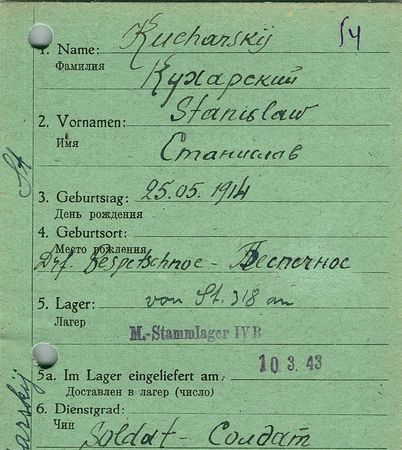 1. Name: Kucharskij
Фамилия Кухарский
54
2. Vornamen: Stanislaw
Имя Станислав
3. Geburtstag: 25.05.1914
День рождения
4. Geburtsort:
Место рождения
Drf. Bespetschnoe - Беспечное
5. Lager: von St. 318 an
Лагерь
M.-Stammlager IV B
5a. Im Lager eingeliefert am: 10.3.43
Доставлен в лагерь (число)
6. Dienstgrad:
Чин
Soldat - Солдат